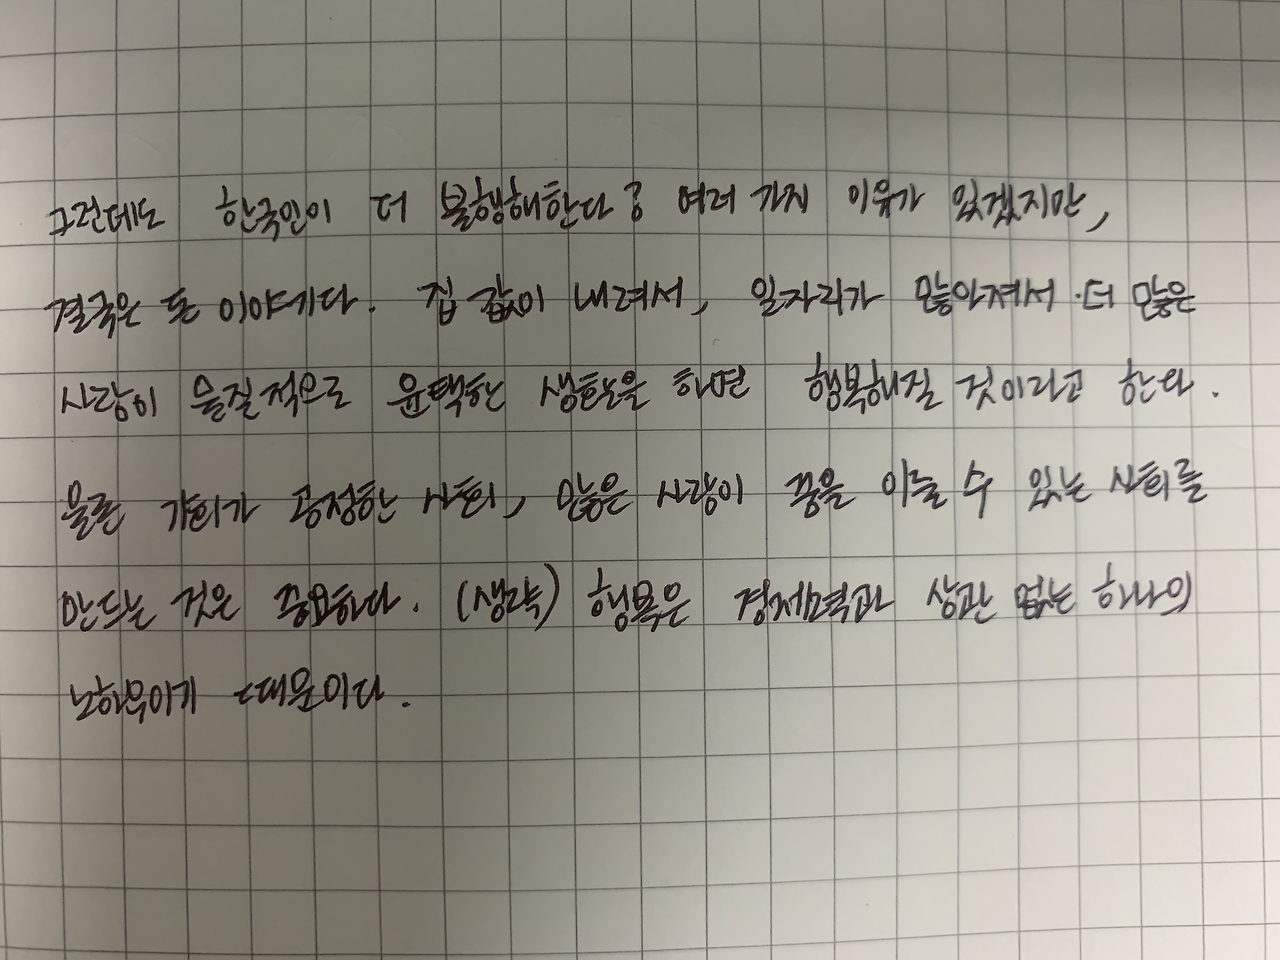 그런데도 한국인이 더 불행해한다? 여러 가지 이유가 있겠지만,
결국은 돈 이야기다. 집 값이 내려서, 일자리가 많아져서 더 많은
사람이 물질적으로 윤택한 생활을 하면 행복해질 것이라고 한다.
물론 기회가 공정한 사회, 많은 사람이 꿈을 이룰 수 있는 사회를
만드는 것은 중요하다. (생략) 행복은 경제력과 상관 없는 하나의
노하우이기 때문이다.